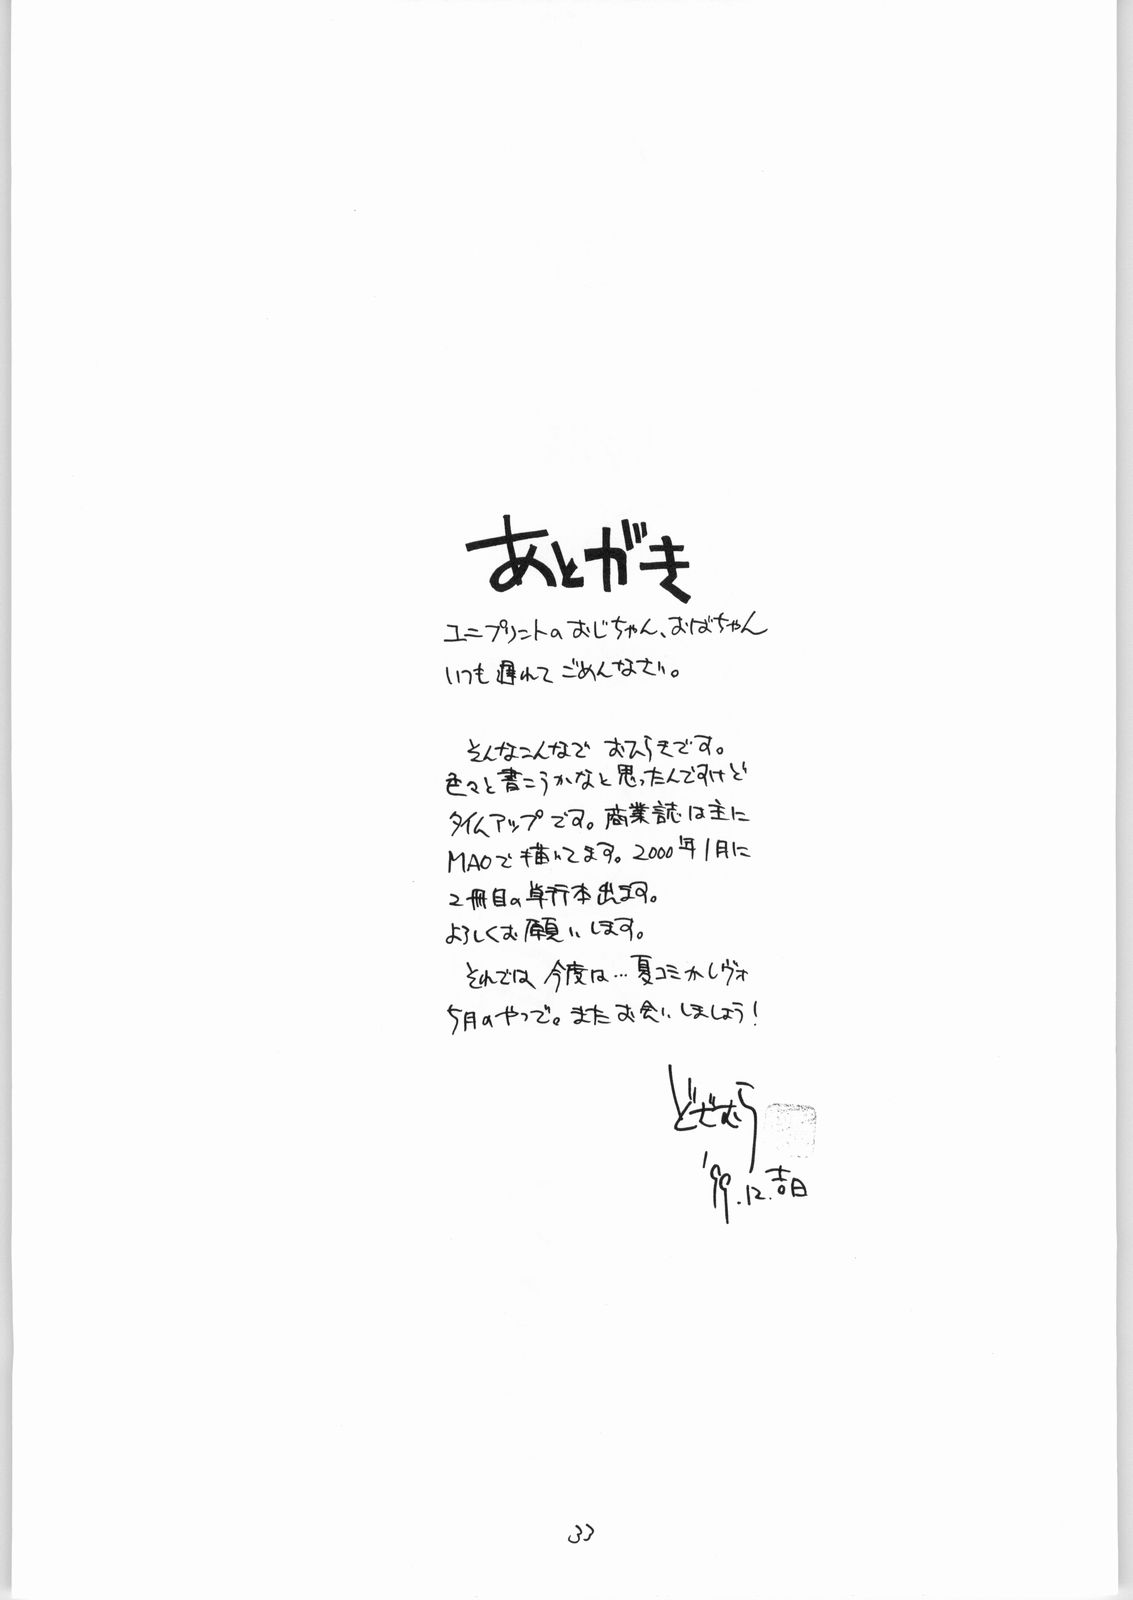 あとがき
ユニプリントのおじちゃん、おばちゃん
いつも遅れてごめんなさい。
そんなこんなでおひらきです。
色々と書こうかなと思ったんですけど
タイムアップです。商業誌は主に
MAOで描いてます。2000年1月に
2冊目の単行本出ます。
よろしくお願いします。
それでは、今度は…夏コミかレヴォ
5月のやつで。またお会いしましょう!
どざむら
'99.12.吉日
33